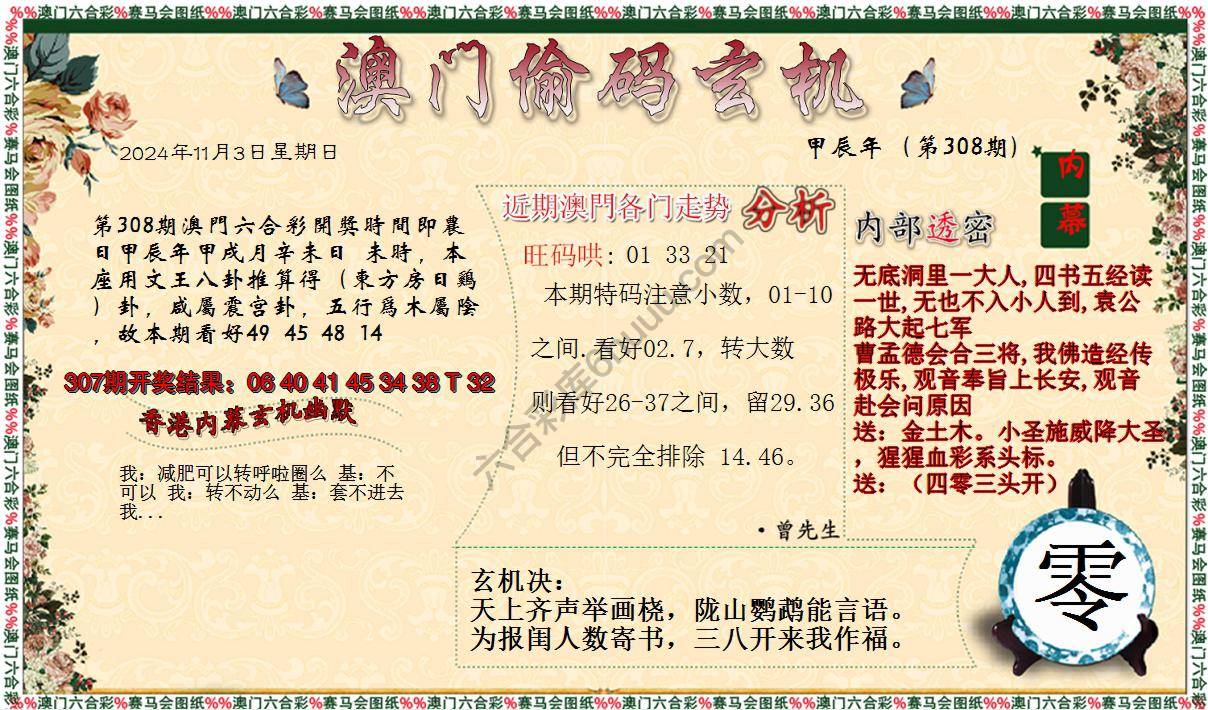 %%澳门六合彩%赛马会图纸%%澳门六合彩%赛马会图纸%%澳门六合彩%赛马会图纸%%澳门六合彩%赛马会图纸%%澳门六合彩%赛马会图纸%%澳门六合彩%赛马会图纸%%
澳门偷码玄机
2024年11月3日星期日
甲辰年（第308期）
内
幕
第308期澳門六合彩開獎時間即農
日甲辰年甲戌月辛未日 未時，本
座用文王八卦推算得（東方房日鷄
）卦，咸屬震宫卦，五行爲木屬陰
，故本期看好49 45 48 14
307期开奖结果：06 40 41 45 34 38 T 32
香港内幕玄机幽默
我：减肥可以转呼啦圈么 基：不
可以 我：转不动么 基：套不进去
我...
近期澳門各门走势 分析
旺码哄：01 33 21
本期特码注意小数，01-10
之间.看好02.7，转大数
则看好26-37之间，留29.36
但不完全排除 14.46。
·曾先生
内部透密
无底洞里一大人,四书五经读
一世,无也不入小人到,袁公
路大起七军
曹孟德会合三将,我佛造经传
极乐,观音奉旨上长安,观音
赴会问原因
送：金土木。小圣施威降大圣
，猩猩血彩系头标。
送：（四零三头开）
玄机决：
天上齐声举画桡，陇山鹦鹉能言语。
为报闺人数寄书，三八开来我作福。
零
六合彩库6huuu.com
%%澳门六合彩%赛马会图纸%%澳门六合彩%赛马会图纸%%澳门六合彩%赛马会图纸%%澳门六合彩%赛马会图纸%%澳门六合彩%赛马会图纸%%澳门六合彩%赛马会图纸%%